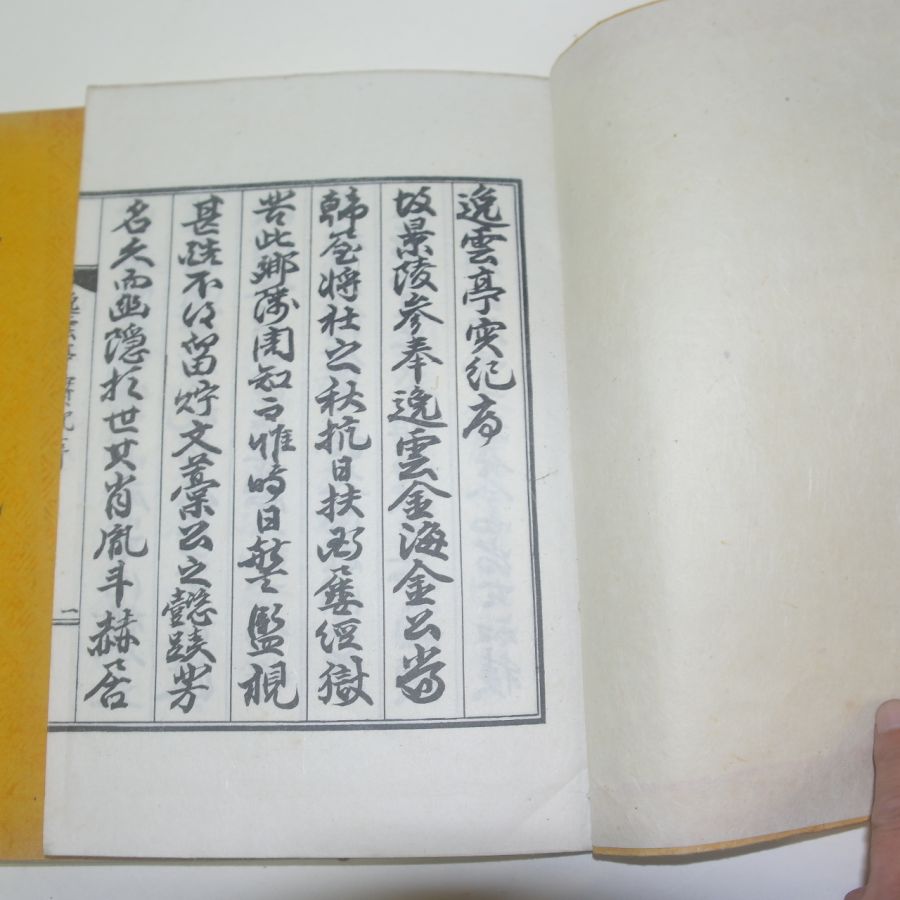 逸雲亭實紀序
故景陵參奉逸雲金海金公當
韓屋將社之秋抗日扶國屢經獄
苦此鄉隣周知而惟時日警監視
甚酷不得留貯文藁公之懿蹟芳
名久而幽隱於世其肖胤斗赫居
逸雲亭實紀序
一